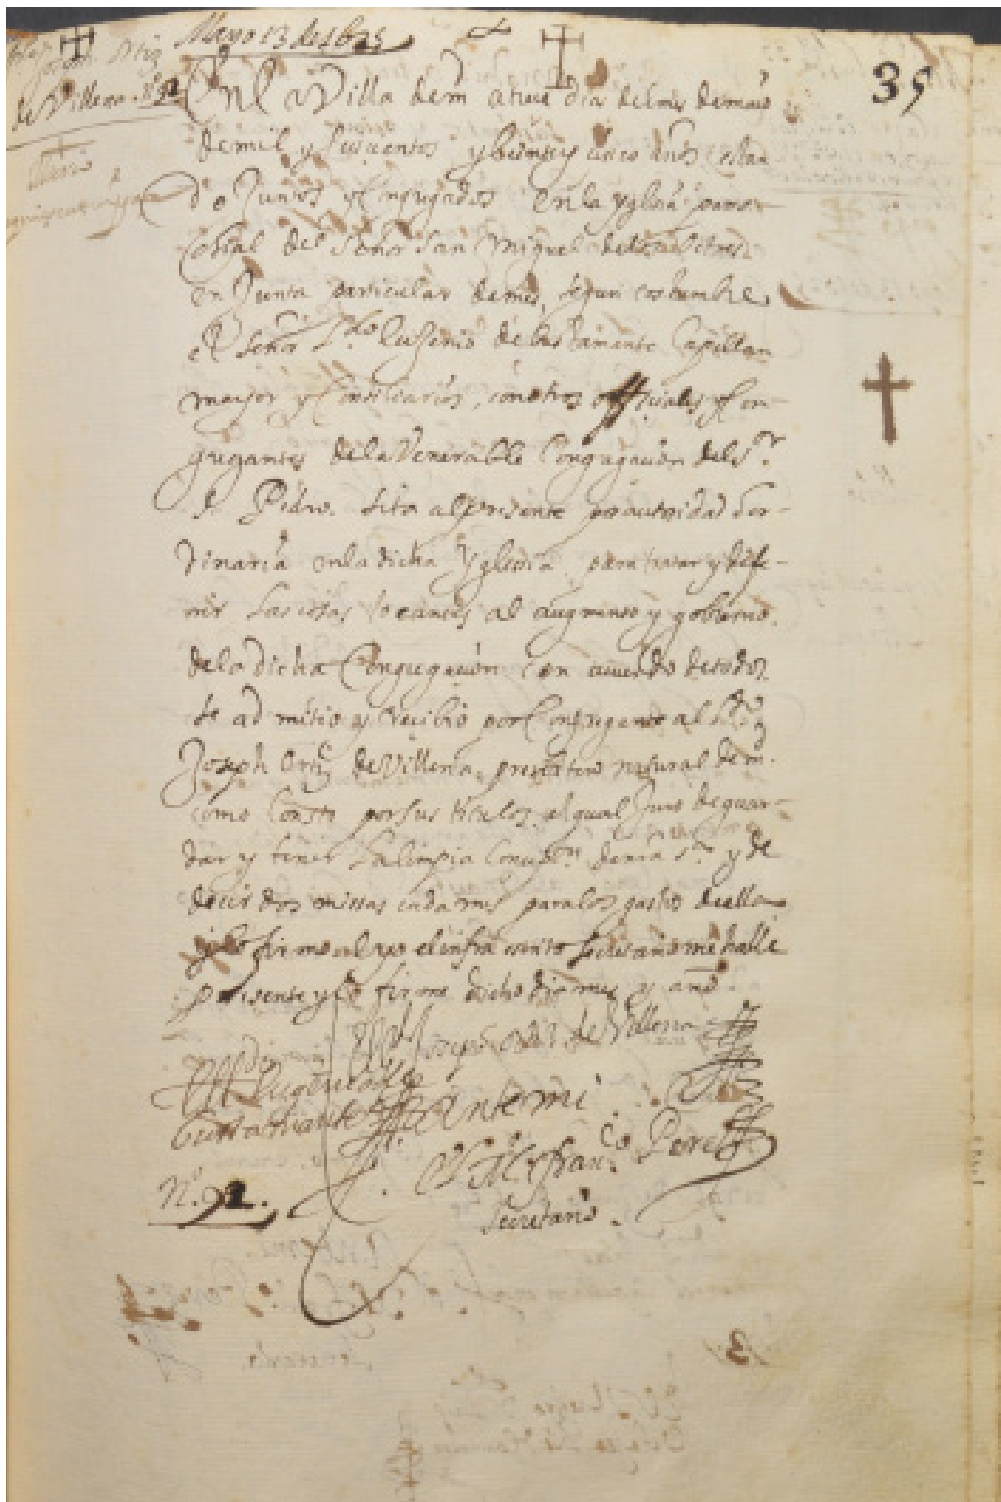 Mayo 13 de 1625
35
Joseph Ortiz
de Villena. nº 92
En la Villa de md. a trece dias del mes de mayo
de mil y seiscientos y beinte y cinco años estan
do Juntos y Congregados en la yglesia parro-
chial del Señor San Miguel de los octoes
en Junta particular de mes, segun costumbre,
el Señor Ldo Eugenio de bustamante Capellan
mayor y Consiliarios, con otros officiales y Con-
gregantes de la Venerable Congregacion del Sr.
S. Pedro. sita al presente por autoridad or-
dinaria en la dicha Yglesia para tratar y difi-
nir las cosas tocantes al augmento y gobierno.
de la dicha Congregacion con acuerdo de todos
se admitio y recibio por Congregante al Ldo
Joseph Ortiz de Villena, presbitero natural de md.
como Consto por sus titulos el qual Juro de guar-
dar y tener la limpia Concepon de nra Sra y de
decir dos missas cada mes para los gastos de ella
y lo firmo al que el infra scrito Secretario me halle
presente y lo firme dicho dia mes y año
Joseph Ortiz de Villena
Ldo Eugenio de
Bustamante
Ante mi
El Mro franco Perez
Secretario.
Nº. 92.